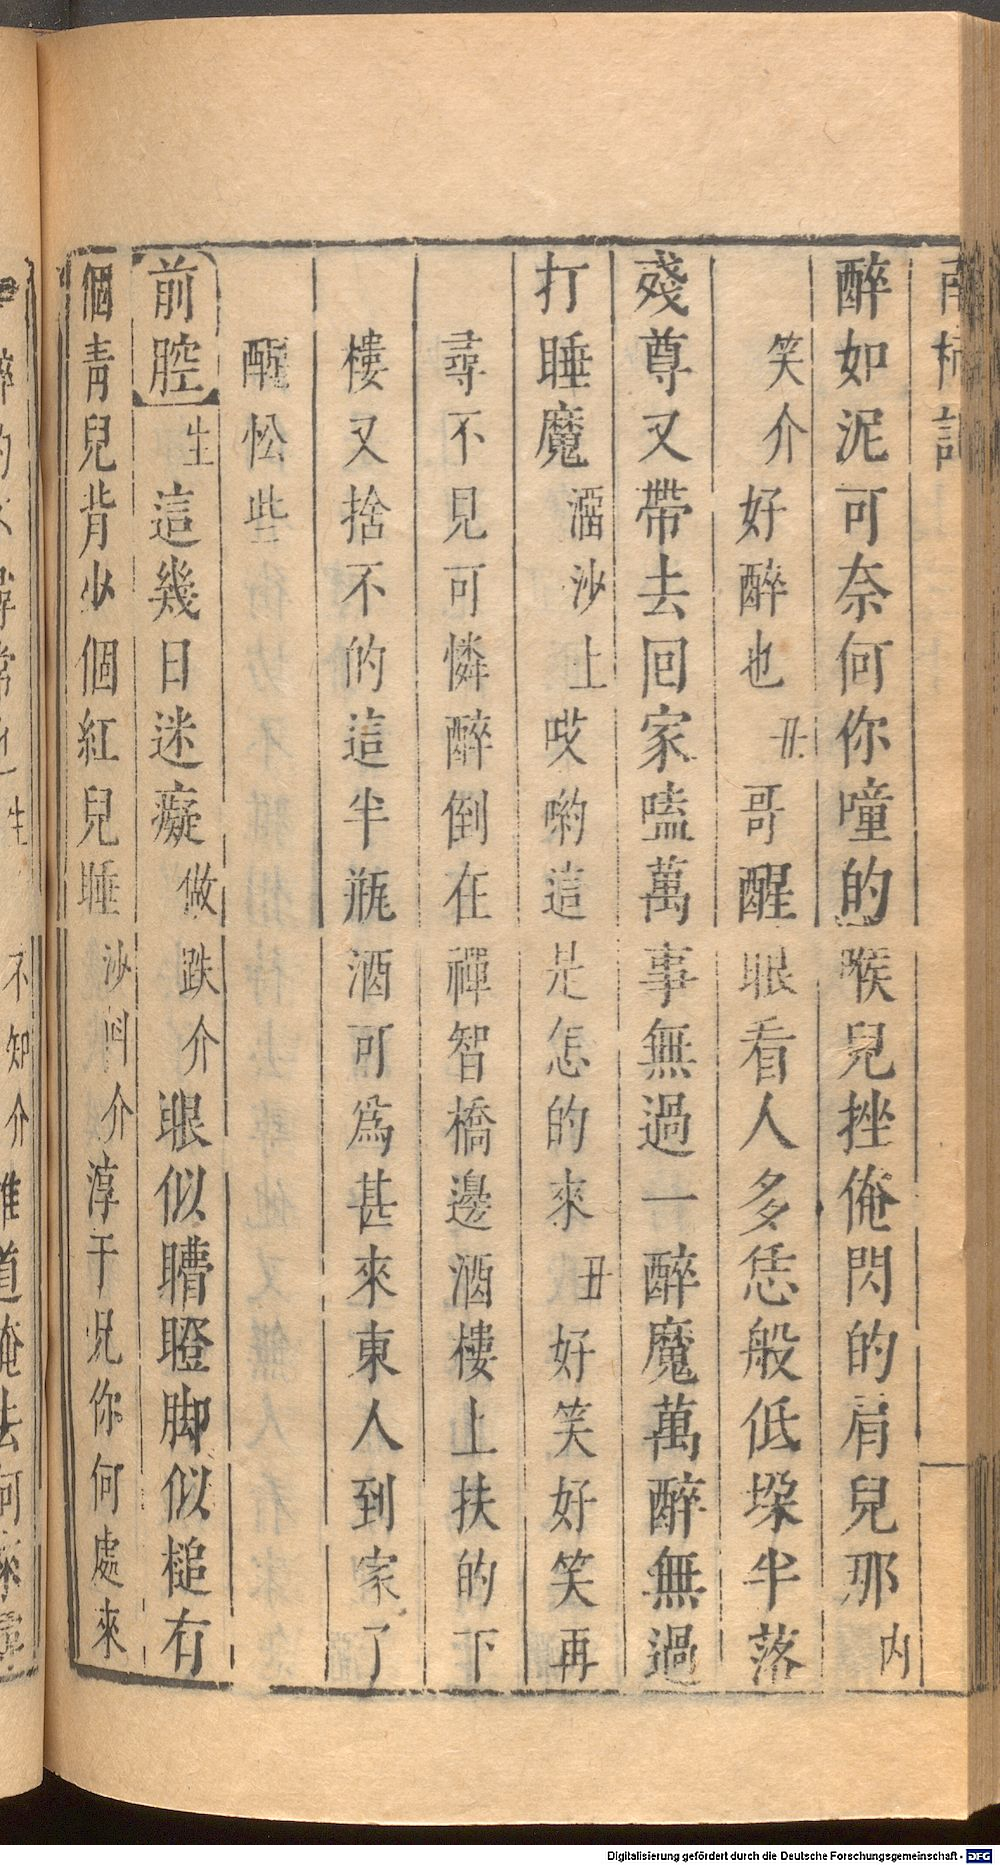 南柯記
醉如泥可奈何你瞳的喉兒挫俺閃的肩兒那内
笑介好醉也丑哥醒眼看人多恁般低垛半落
殘尊又帶去回家嗑萬事無過一醉魔萬醉無過
打睡魔溜沙上哎喲這是怎的來丑好笑好笑再
尋不見可憐醉倒在禪智橋邊酒樓上扶的下
樓又捨不的這半瓶酒可爲甚來東人到家了
醒忪些
前腔生這幾日迷癡做跌介眼似瞔瞪脚似槌有
個青兒背少個紅兒睡沙問介淳于兄你何處來
不知介誰道俺去何
Digitalisierung gefördert durch die Deutsche Forschungsgemeinschaft - DFG